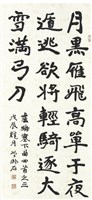 月黑雁飛高單于夜
遁逃欲將輕騎逐大
雪滿弓刀
盧綸塞下曲四首之三
戊辰 月